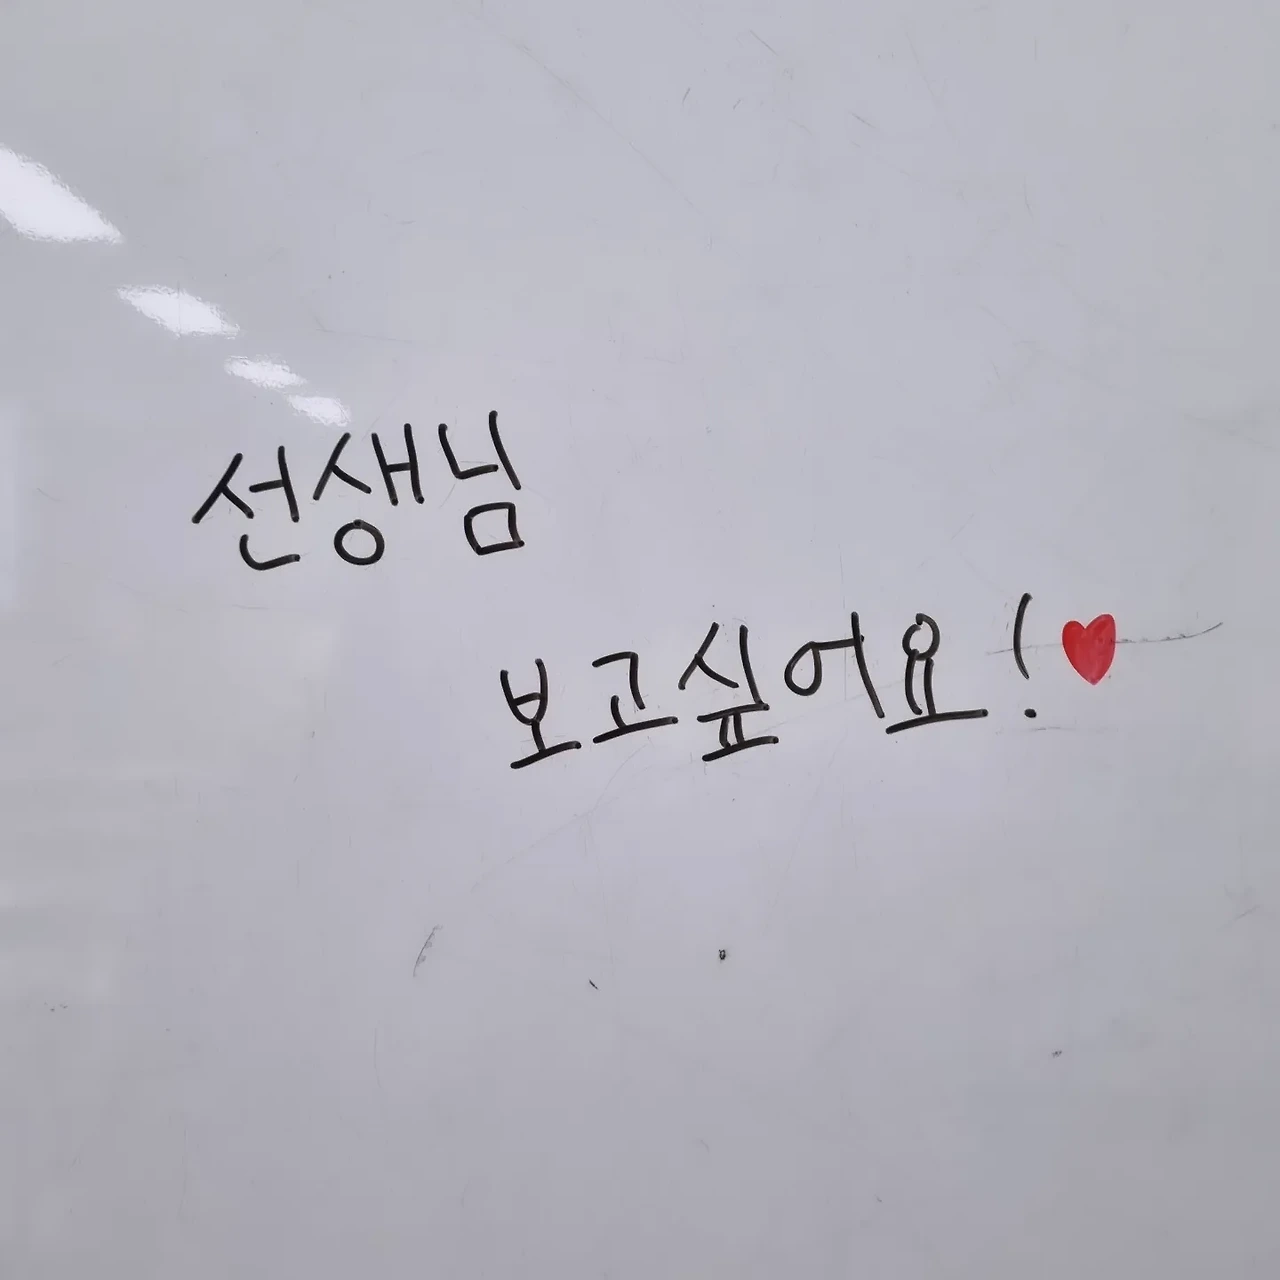 선생님
보고싶어요!♥